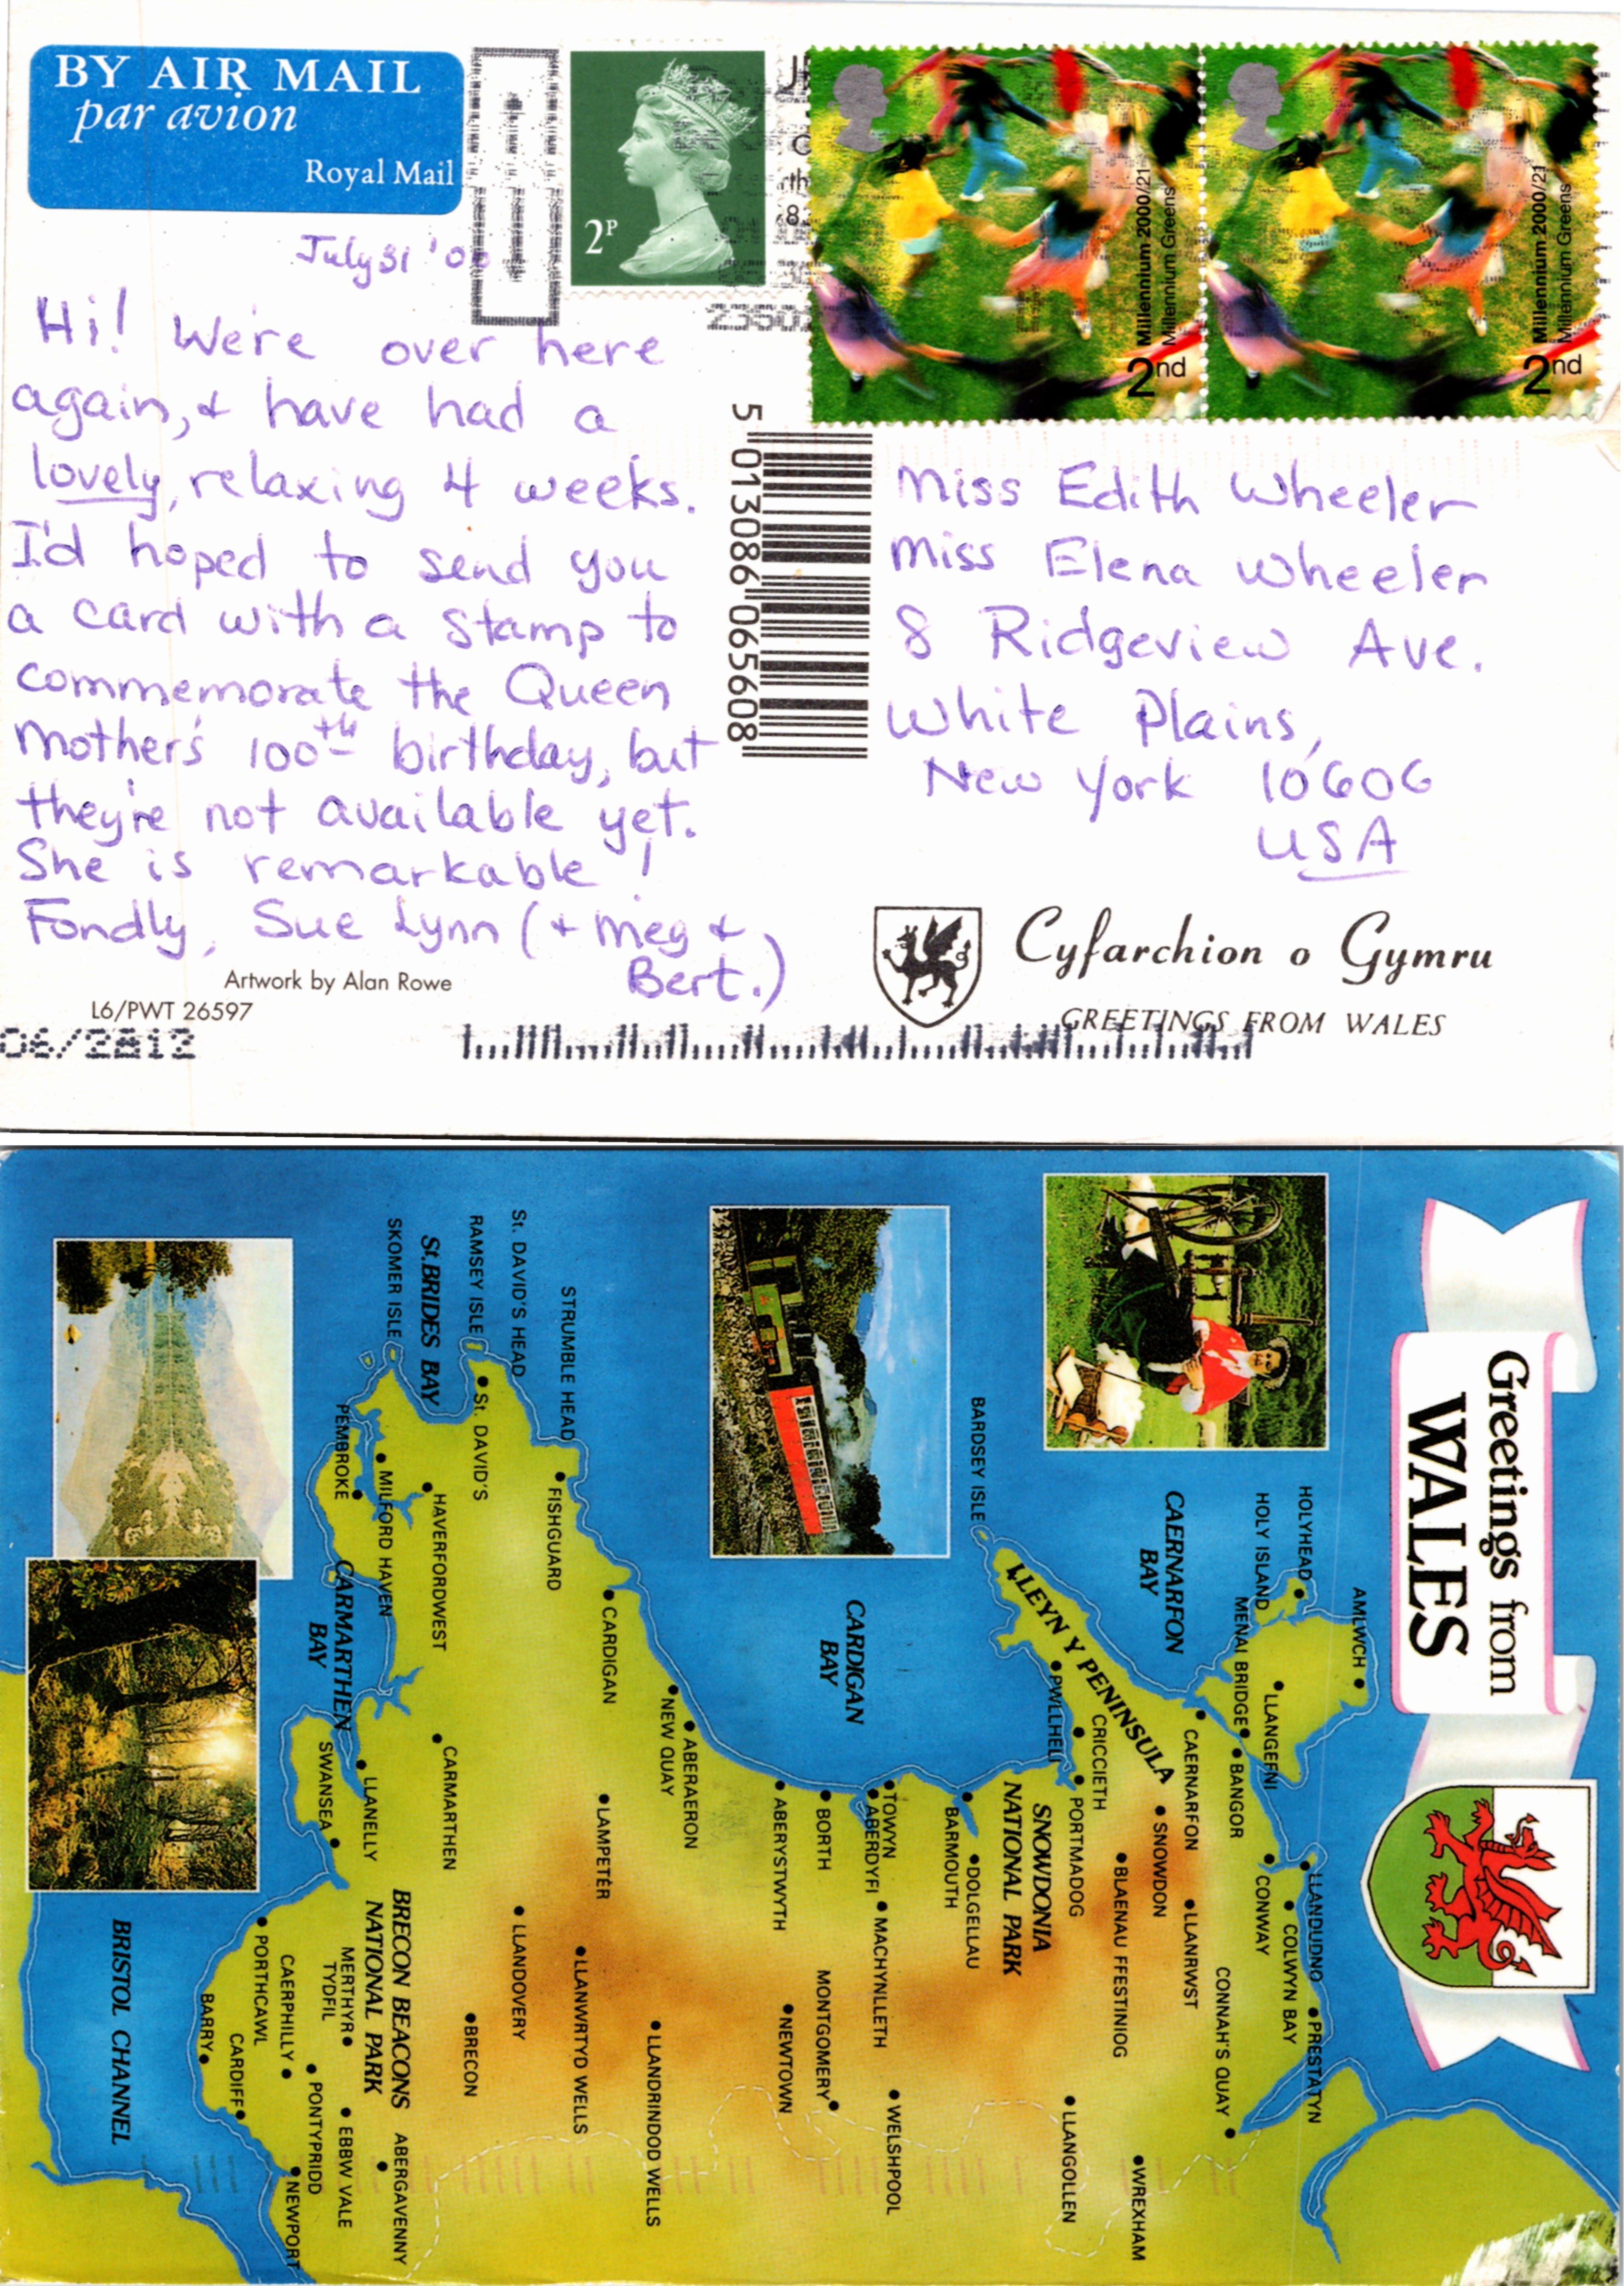 BY AIR MAIL
par avion
Royal Mail
2P
Millennium 2000/21
Millennium Greens
2nd
Millennium 2000/21
Millennium Greens
2nd
July 31 '00
Hi! We're over here
again, & have had a
lovely, relaxing 4 weeks.
I'd hoped to send you
a card with a stamp to
commemorate the Queen
Mother's 100th birthday, but
they're not available yet.
She is remarkable!
Fondly, Sue Lynn (& Meg &
Bert.)
Artwork by Alan Rowe
L6/PWT 26597
06/2812
5 013086 065608
Miss Edith Wheeler
Miss Elena Wheeler
8 Ridgeview Ave.
White Plains,
New York 10606
USA
Cyfarchion o Gymru
GREETINGS FROM WALES
Greetings from
WALES
AMLWCH
HOLYHEAD
HOLY ISLAND
LLANGEFNI
MENAI BRIDGE
BANGOR
LLANDUDNO
PRESTATYN
COLWYN BAY
CONWAY
CONNAH'S QUAY
CAERNARFON
BAY
CAERNARFON
LLANRWST
SNOWDON
WREXHAM
BLAENAU FFESTINIOG
LLEYN Y PENINSULA
CRICCIETH
PORTMADOG
PWLLHELI
LLANGOLLEN
SNOWDONIA
NATIONAL PARK
BARDSEY ISLE
DOLGELLAU
BARMOUTH
TOWYN
ABERDYFI
MACHYNLLETH
WELSHPOOL
CARDIGAN
BAY
BORTH
MONTGOMERY
ABERYSTWYTH
NEWTOWN
ABERAERON
NEW QUAY
LLANDRINDOD WELLS
CARDIGAN
LAMPETER
LLANWRTYD WELLS
STRUMBLE HEAD
FISHGUARD
LLANDOVERY
St. DAVID'S HEAD
St. DAVID'S
RAMSEY ISLE
BRECON
St. BRIDES BAY
HAVERFORDWEST
CARMARTHEN
SKOMER ISLE
MILFORD HAVEN
PEMBROKE
BRECON BEACONS
NATIONAL PARK
ABERGAVENNY
LLANELLY
MERTHYR
TYDFIL
EBBW VALE
CARMARTHEN
BAY
SWANSEA
PONTYPRIDD
CAERPHILLY
NEWPORT
PORTHCAWL
CARDIFF
BARRY
BRISTOL CHANNEL